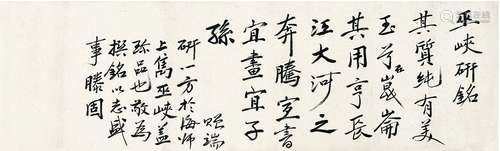 巫峽研銘
其質純有美
玉兮在崑崙
其用亨長
江大河之
奔騰宜書
宜畫宜子
孫
贈端
研一方於海師
上雋巫峽蓋
珍品也敬為
撰銘以志盛
事滕固